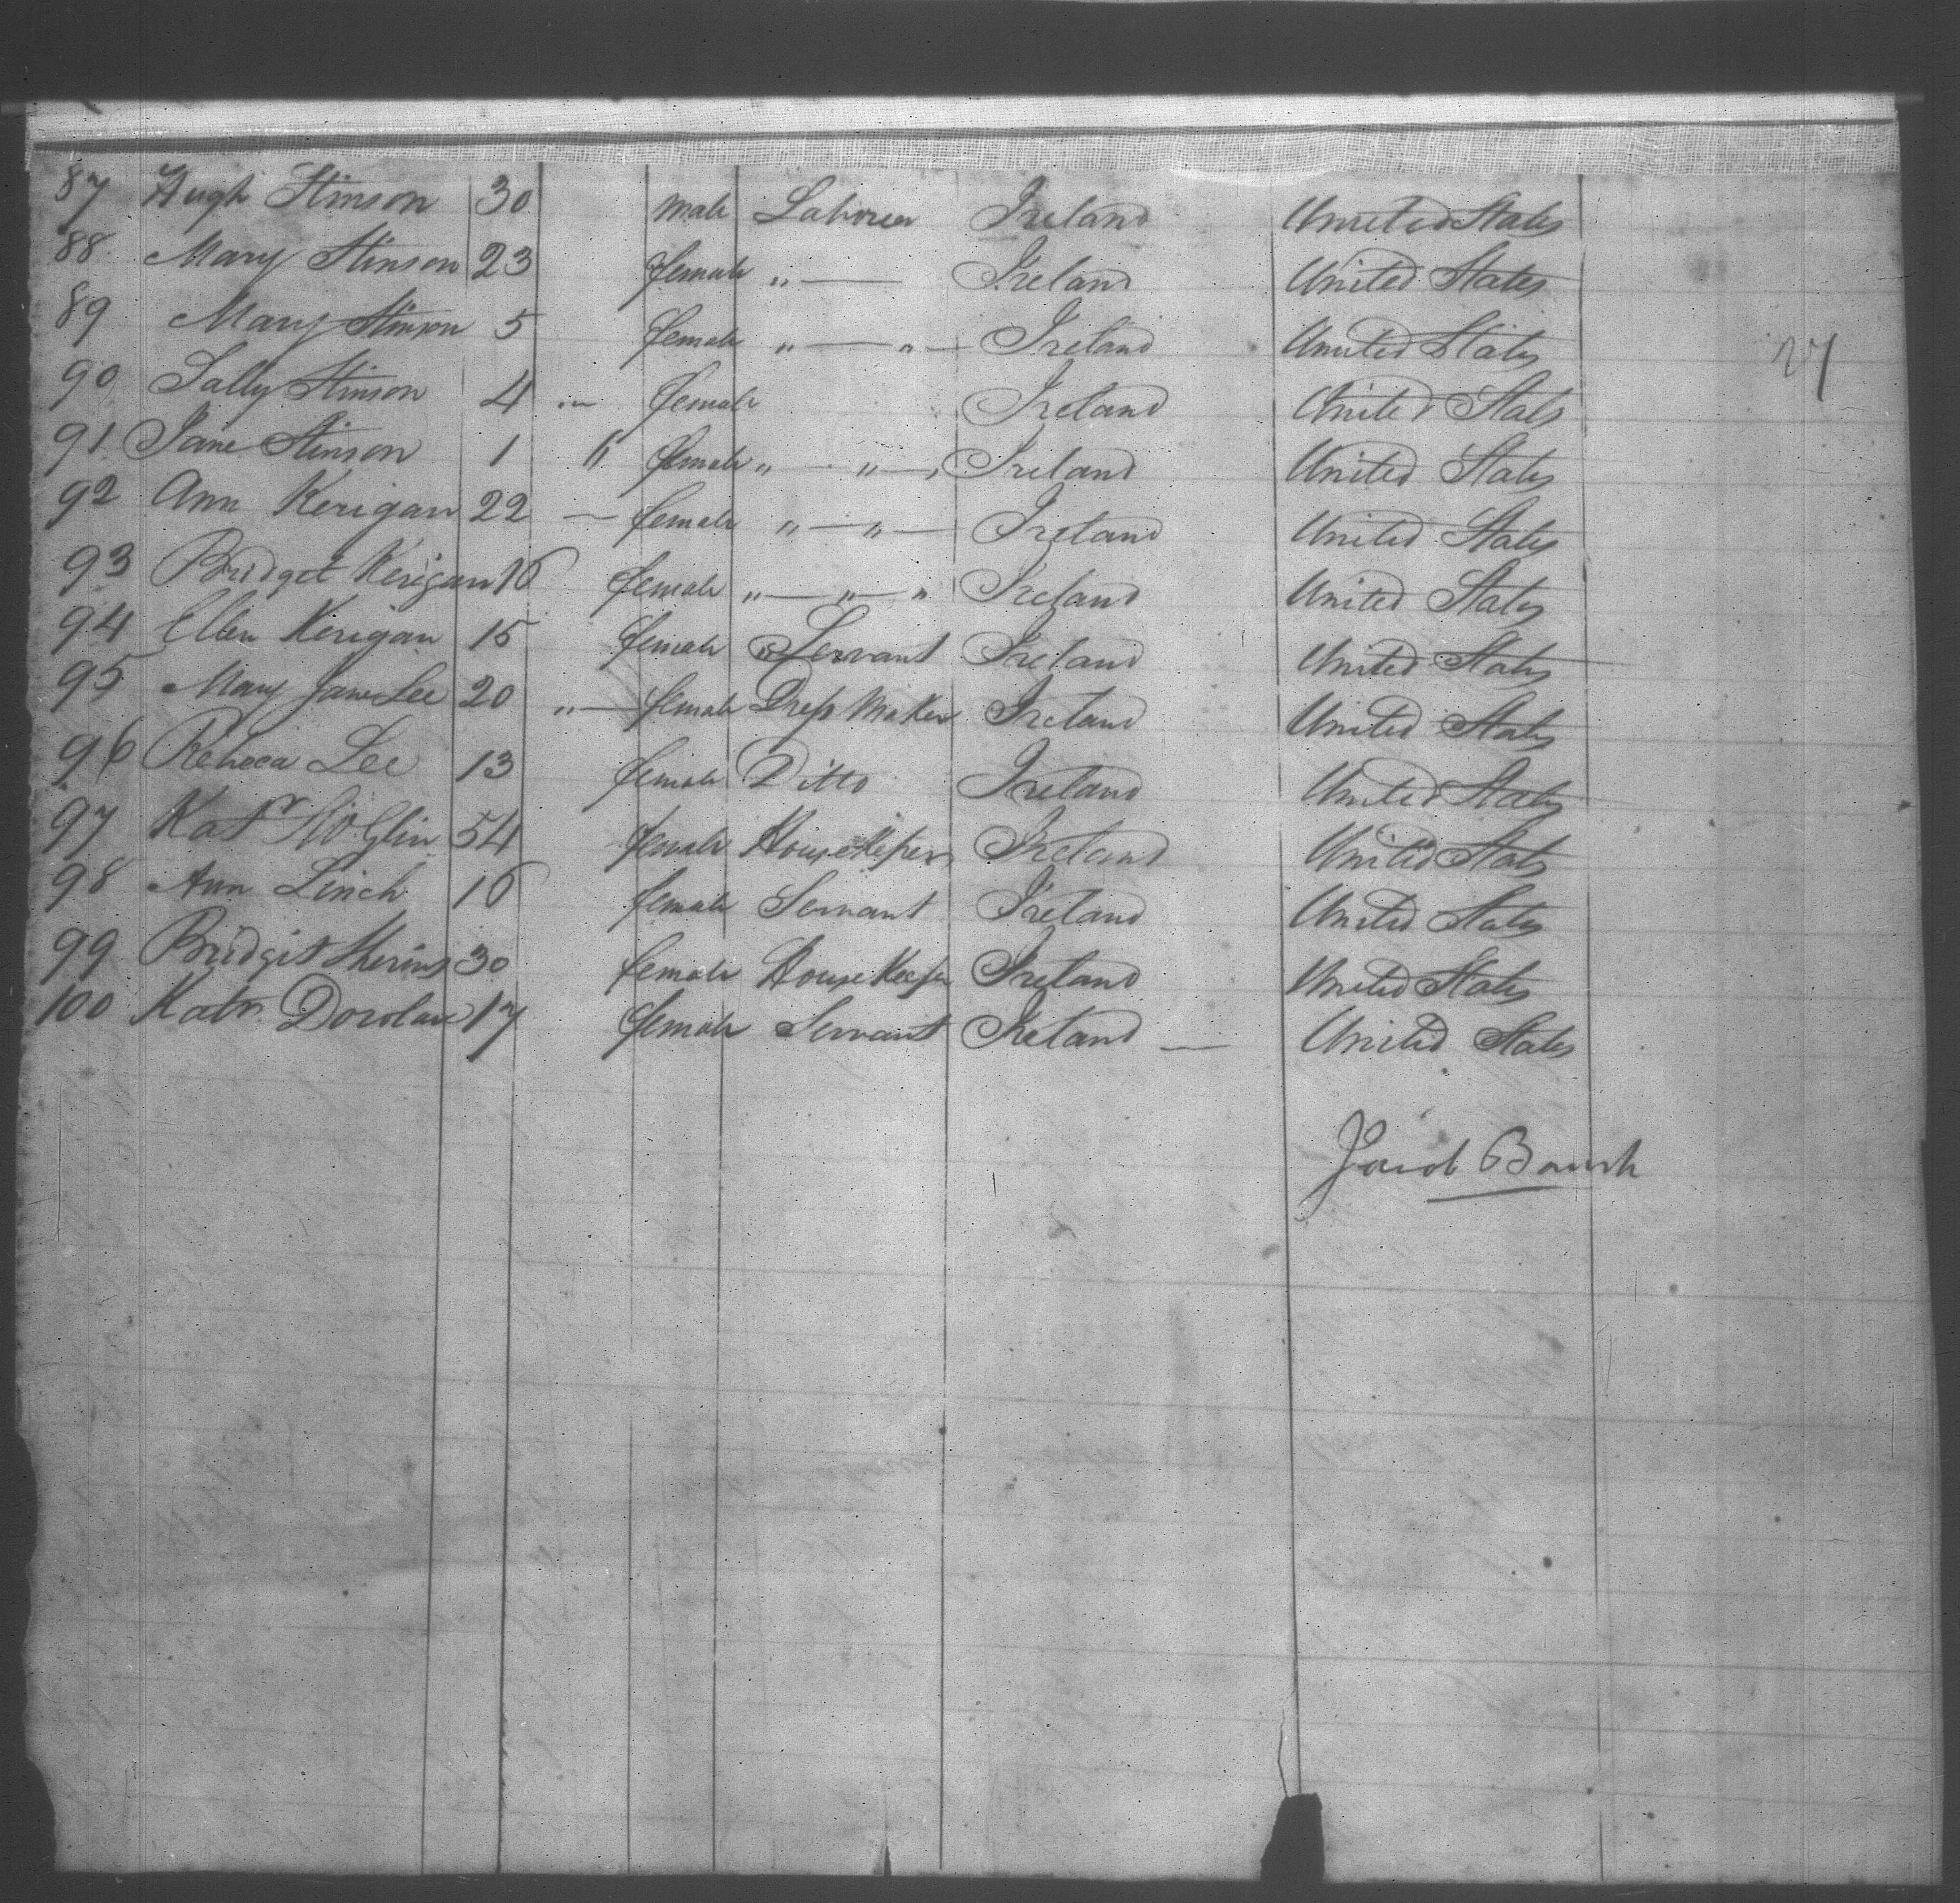 87 Hugh Stinson 30 male Laborer Ireland United States
88 Mary Stinson 23 female " — Ireland United States
89 Mary Stinson 5 female " — " — Ireland United States
90 Sally Stinson 4 " — female Ireland United States
91 Jane Stinson 1 6 female " — " — Ireland United States
92 Ann Kerigan 22 — female " — " — Ireland United States
93 Bridget Kerigan 16 female " — " — " Ireland United States
94 Ellen Kerigan 15 female Servant Ireland United States
95 Mary Jane Lee 20 " — female Dress Maker Ireland United States
96 Rebeca Lee 13 female Ditto Ireland United States
97 Katr 54 female Housekeeper Ireland United States
98 Ann Linch 16 female Servant Ireland United States
99 Bridgit 30 female House Keeper Ireland United States
100 Katr. 17 female Servant Ireland — United States
27